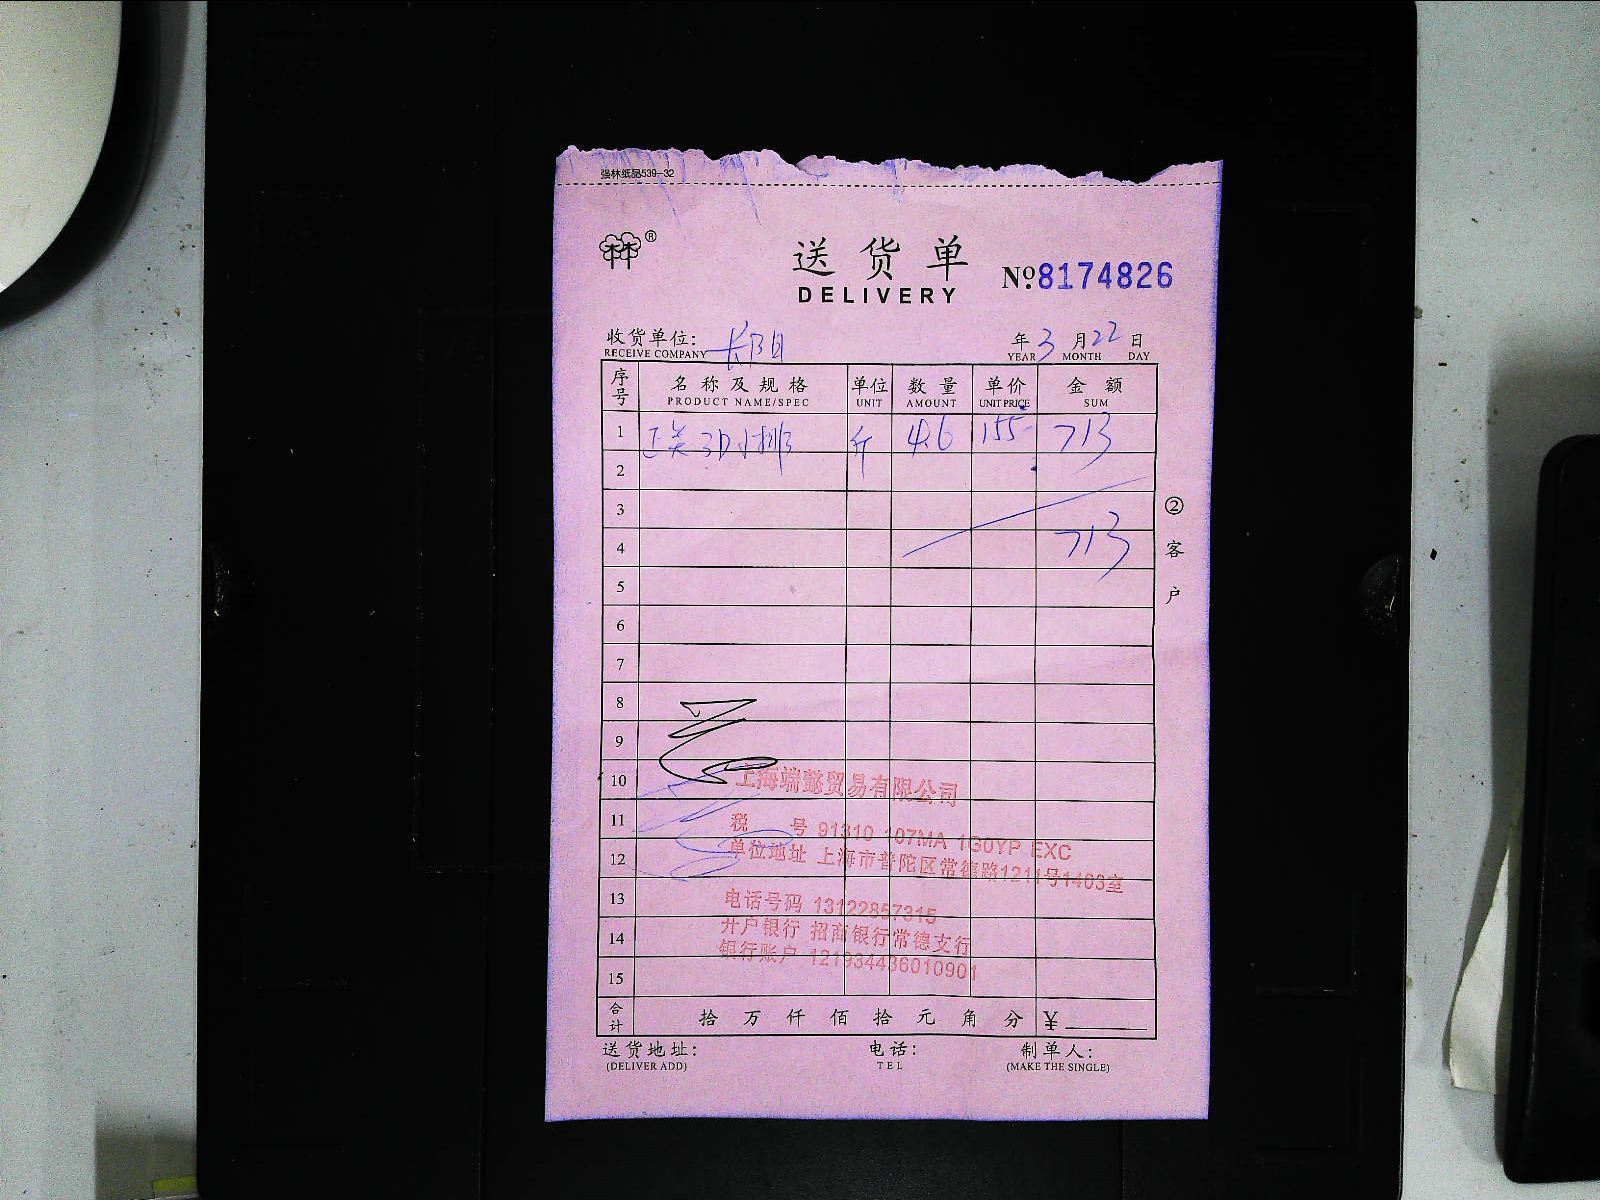 强林纸品539-32
林林®
送货单
DELIVERY
№8174826
收货单位: 长阳
RECEIVE COMPANY
年 3 月 22 日
YEAR MONTH DAY
序号 名称及规格 单位 数量 单价 金额
PRODUCT NAME/SPEC UNIT AMOUNT UNIT PRICE SUM
1 小排 斤 4.6 155 713
2
3
4 713
5
6
7
8
9
10
11
12
13
14
15
②客户
上海端懿贸易有限公司
税 号 91310 107MA 1G0YP EXC
单位地址 上海市普陀区常德路1211号1403室
电话号码 13122857315
开户银行 招商银行常德支行
银行账户 121934436010901
合计 拾 万 仟 佰 拾 元 角 分 ¥
送货地址: 电话: 制单人:
(DELIVER ADD) TEL (MAKE THE SINGLE)